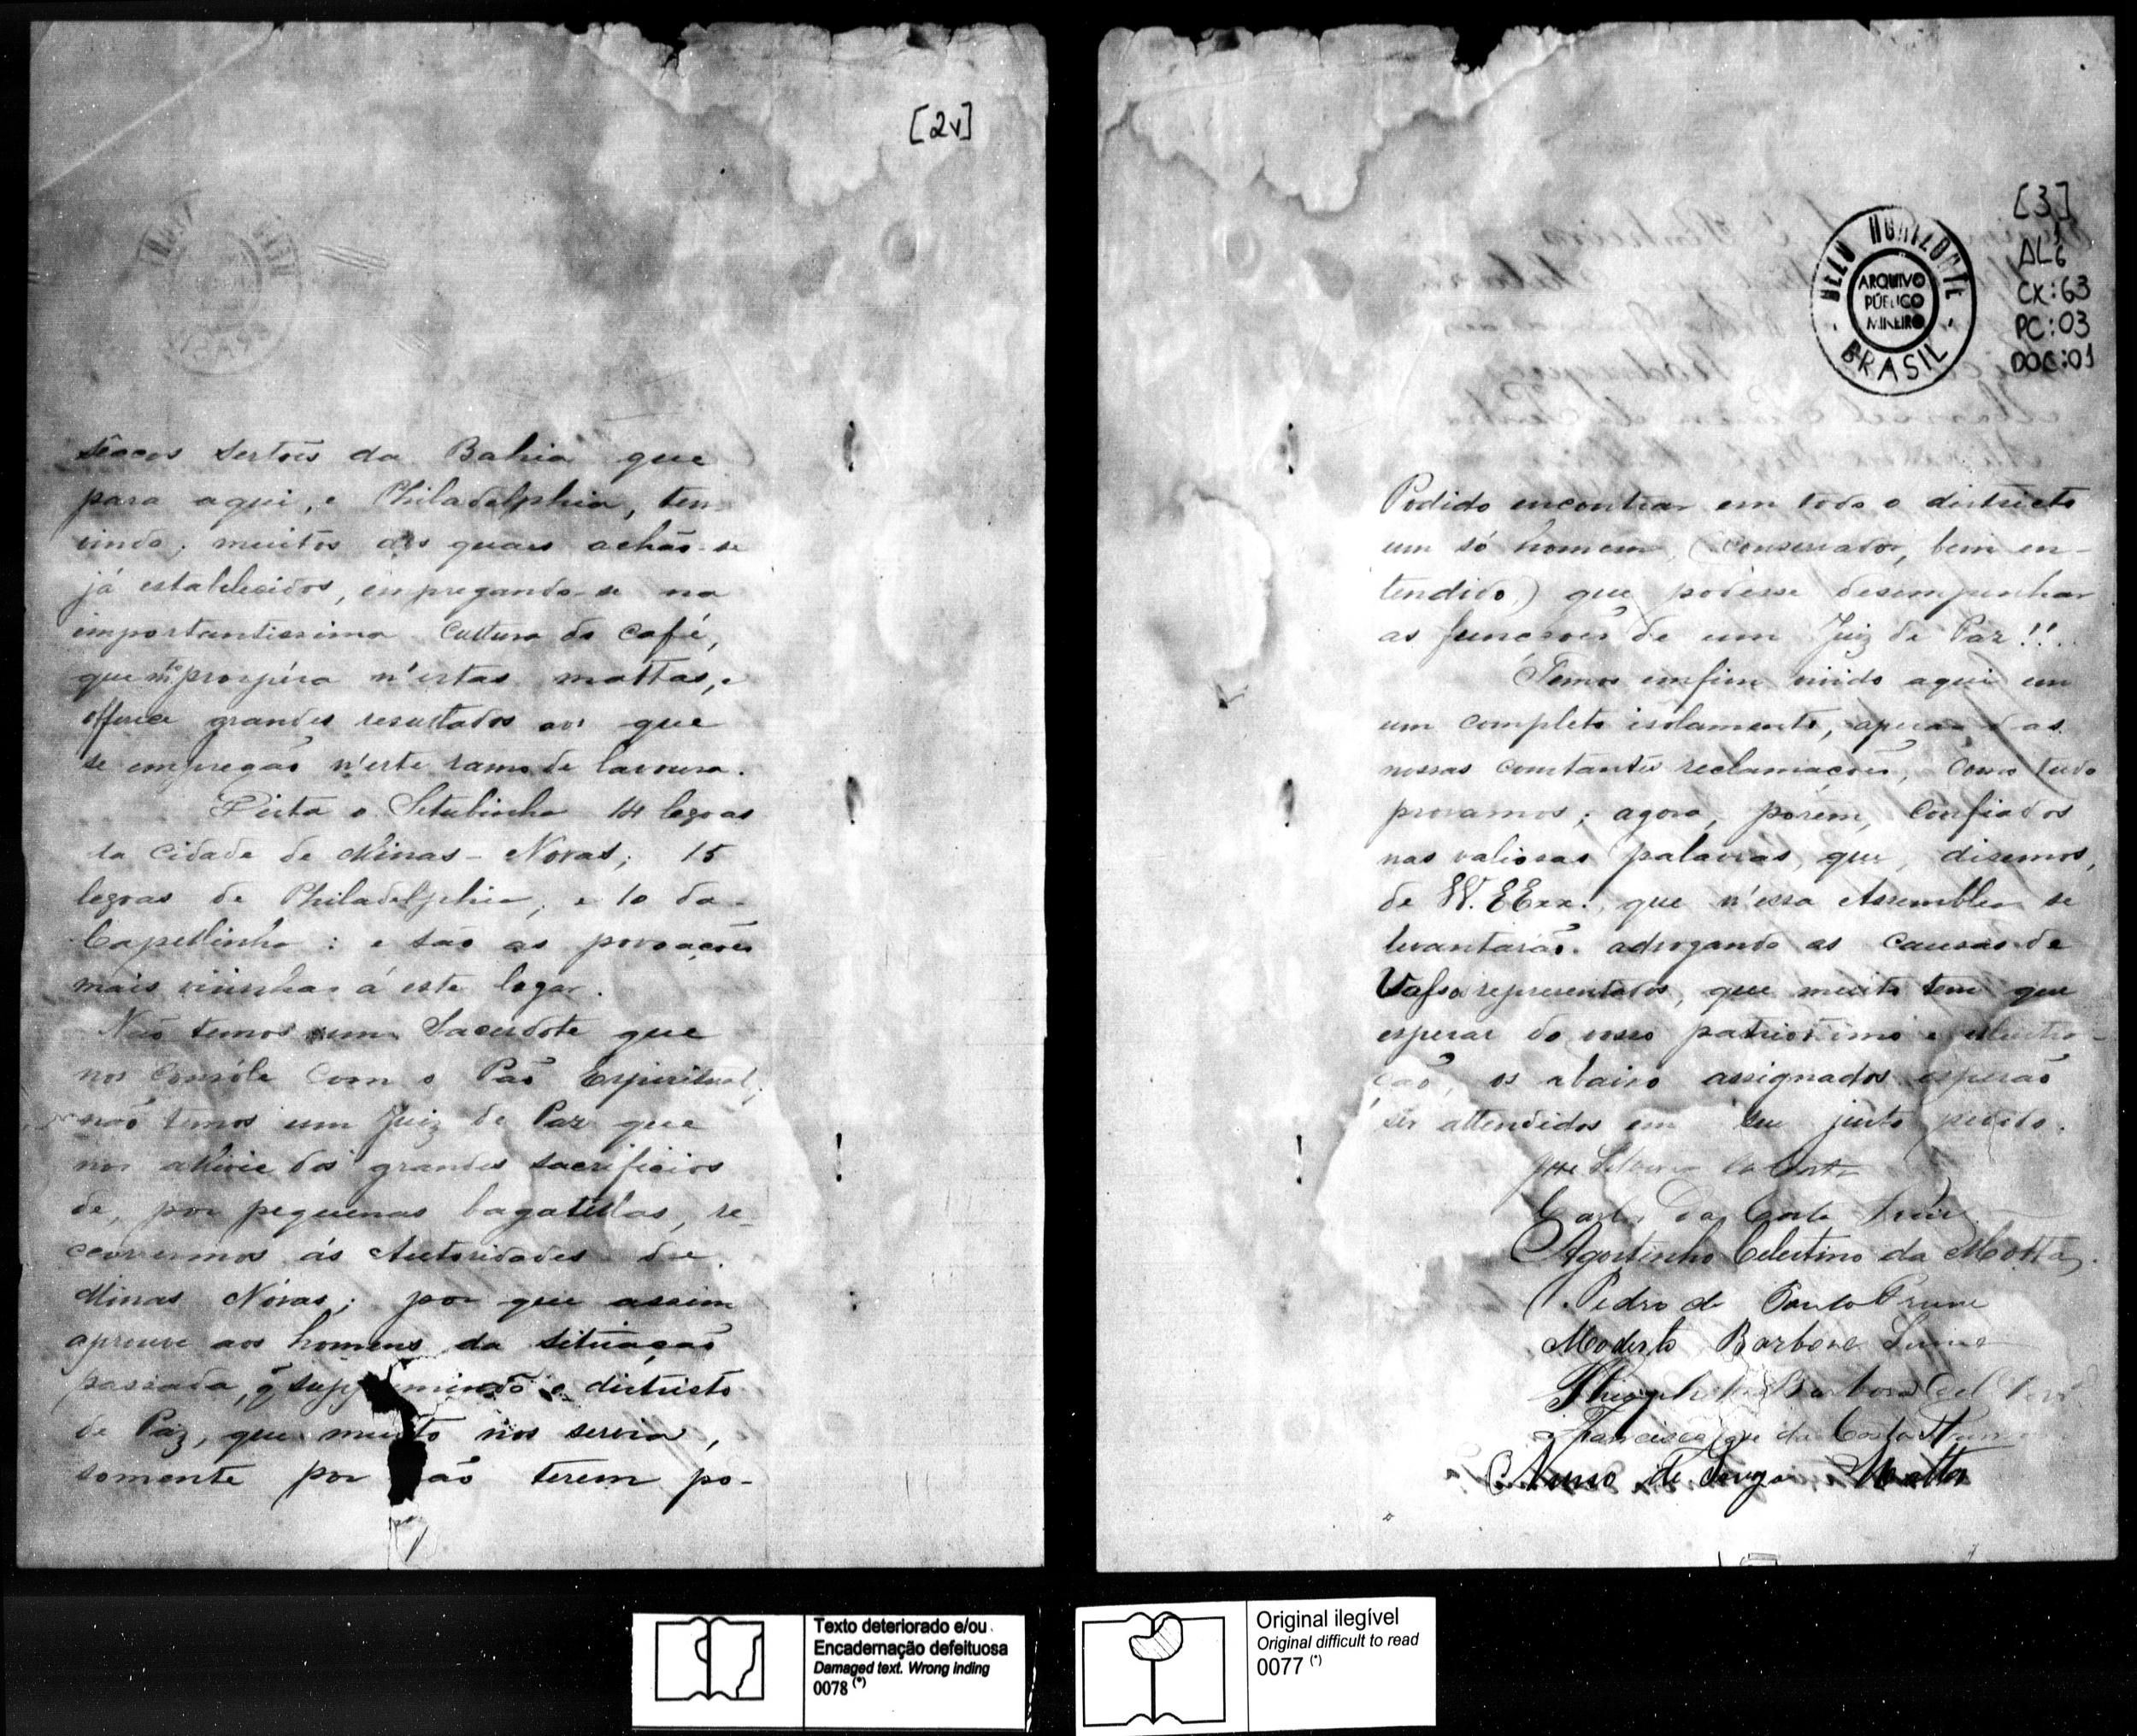 [2v]
sêccos sertões da Bahia que
para aqui, e Philadelphia, tem
vindo; muitos dos quaes achão-se
já estabelecidos, empregando-se na
importantissima cultura do café,
que m.to prospéra n'estas mattas, e
offerece grandes resultados aos que
se empregão n'este ramo de lavoura.
Dista o Setubinha 14 legoas
da Cidade de Minas-Novas; 15
legoas de Philadelphia, e 10 da
Capellinha: e são as povoações
mais visinhas á este logar.
Não temos um Sacerdote que
nos consóle com o Pão Espiritual;
não temos um Juiz de Paz que
nos allivie dos grandes sacrificios
de, por pequenas bagatellas, re-
corrermos ás Autoridades de
Minas Novas; por que assim
aprouve aos homens da situação
passada, q̃ supp mindo o districto
de Paz, que muito nos servia,
somente por ão terem po-
[3]
AL6
CX:63
PC:03
DOC:01
BELLO HORIZONTE
ARQUIVO
PÚBLICO
MINEIRO
- BRASIL -
Podido encontrar em todo o districto
um só homem, (conservador, bem en-
tendido) que podesse desempenhar
as funcções de um Juiz de Paz!!.
Temos emfim vivido aqui em
um completo isolamento, apezar das
nossas constantes reclamações, como tudo
provamos; agora, porém, confiados
nas valiosas palavras, que, disemos,
de VV. EExx. que n'essa Assemblea se
levantarão advogando as causas de
representados, que muito tem que
esperar do vosso patriotismo e illustra-
ção, os abaixo assignados esperão
ser attendidos em seu justo pedido.
da Costa
Carlos da Costa
Agostinho Celestino da Motta
Pedro de Prune
Modesto Barbosa
Barbosa
Francisco da Costa
de Motta
Texto deteriorado e/ou
Encadernação defeituosa
Damaged text. Wrong inding
0078 (*)
Original ilegível
Original difficult to read
0077 (*)